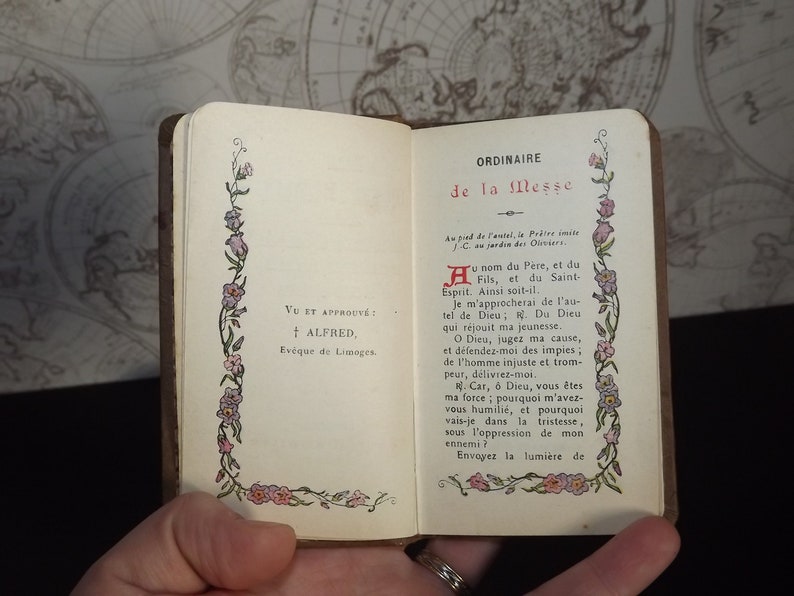 VU ET APPROUVÉ :
† ALFRED,
Evêque de Limoges.
ORDINAIRE
de la Messe
Au pied de l'autel, le Prêtre imite
J.-C. au jardin des Oliviers.
AU nom du Père, et du
Fils, et du Saint-
Esprit. Ainsi soit-il.
Je m'approcherai de l'au-
tel de Dieu ; ℟. Du Dieu
qui réjouit ma jeunesse.
O Dieu, jugez ma cause,
et défendez-moi des impies ;
de l'homme injuste et trom-
peur, délivrez-moi.
℟. Car, ô Dieu, vous êtes
ma force ; pourquoi m'avez-
vous humilié, et pourquoi
vais-je dans la tristesse,
sous l'oppression de mon
ennemi ?
Envoyez la lumière de